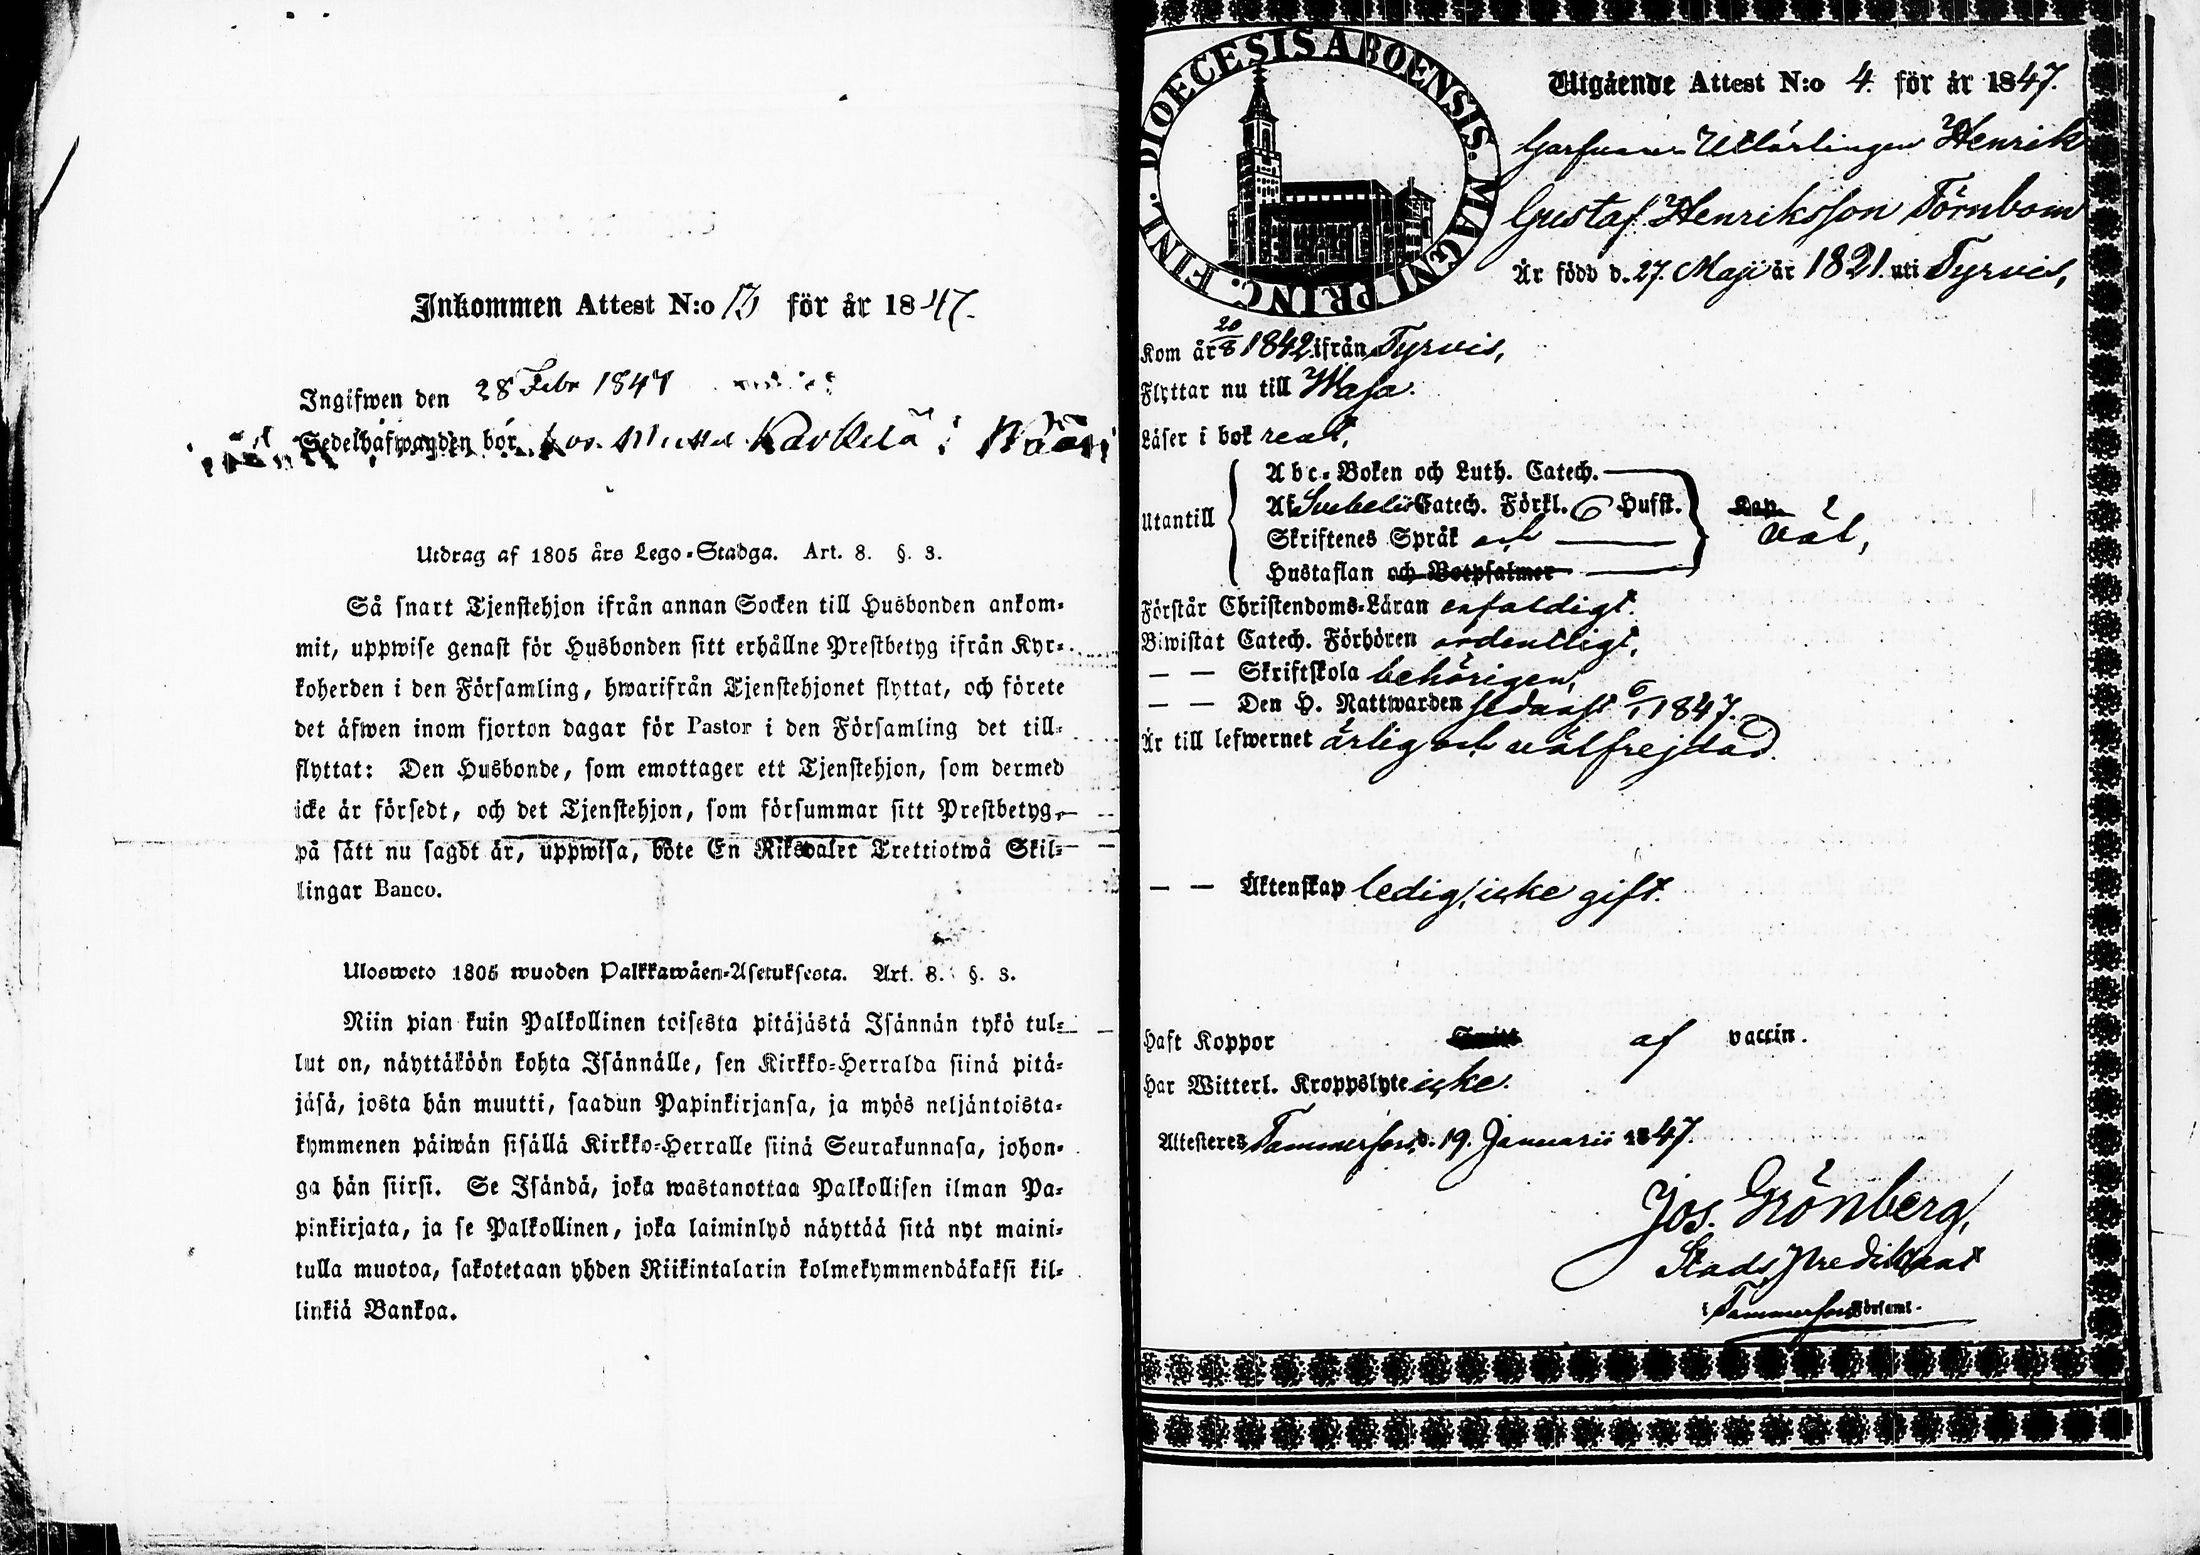 Inkommen Attest N:o 13 för år 1847.
Ingifwen den 28 Febr 1847
Sedelhafwanden bor hos Karkelä i
Utdrag af 1805 års Lego-Stadga. Art. 8. §. 3.
Så snart Tjenstehjon ifrån annan Socken till Husbonden ankom-
mit, uppwise genast för Husbonden sitt erhållne Prestbetyg ifrån Kyr-
koherden i den Församling, hwarifrån Tjenstehjonet flyttat, och förete
det äfwen inom fjorton dagar för Pastor i den Församling det till-
flyttat: Den Husbonde, som emottager ett Tjenstehjon, som dermed
icke är försedt, och det Tjenstehjon, som försummar sitt Prestbetyg,
på sätt nu sagdt är, uppwisa, böte En Riksdaler Trettiotwå Skil-
lingar Banco.
Ulosweto 1805 wuoden Palkkawäen-Asetuksesta. Art. 8. §. 3.
Niin pian kuin Palkollinen toisesta pitäjästä Isännän tykö tul-
lut on, näyttäköön kohta Isännälle, sen Kirkko-Herralda siinä pitä-
jäsä, josta hän muutti, saadun Papinkirjansa, ja myös neljäntoista-
kymmenen päiwän sisällä Kirkko-Herralle siinä Seurakunnasa, johon-
ga hän siirsi. Se Isändä, joka wastanottaa Palkollisen ilman Pa-
pinkirjata, ja se Palkollinen, joka laiminlyö näyttää sitä nyt maini-
tulla muotoa, sakotetaan yhden Riikintalarin kolmekymmendäkaksi kil-
linkiä Bankoa.
DIOECESIS ABOENSIS. MAGNI PRINC. FINL.
Utgående Attest N:o 4 för år 1847.
Garfvare Utlärlingen Henrik
Gustaf Henriksson Törnbom
Är född d. 27. Maji år 1821. uti Tyrvis,
Kom år 20/8 1842 ifrån Tyrvis,
Flyttar nu till Wasa.
Läser i bok rent,
Utantill
Abc-Boken och Luth. Catech.
Af Svebelii Catech. Förkl. 6 Hufst. Kap.
Skriftenes Språk och
väl,
Hustaflan och Botpsalmer
Förstår Christendoms-Läran enfaldigt.
Biwistat Catech. Förhören ordentligt,
— — Skriftskola behörigen,
— — Den H. Nattwarden sednast 6/1 1847.
Är till lefwernet ärlig och välfrejdad.
— — Äktenskap ledig, icke gift.
Haft Koppor af vaccin.
Har Witterl. Kroppslyte icke.
Attesteres Tammerfors, d. 19. Januarii 1847.
Jos. Grönberg,
Stads Predikant
i Tammerfors Församl.